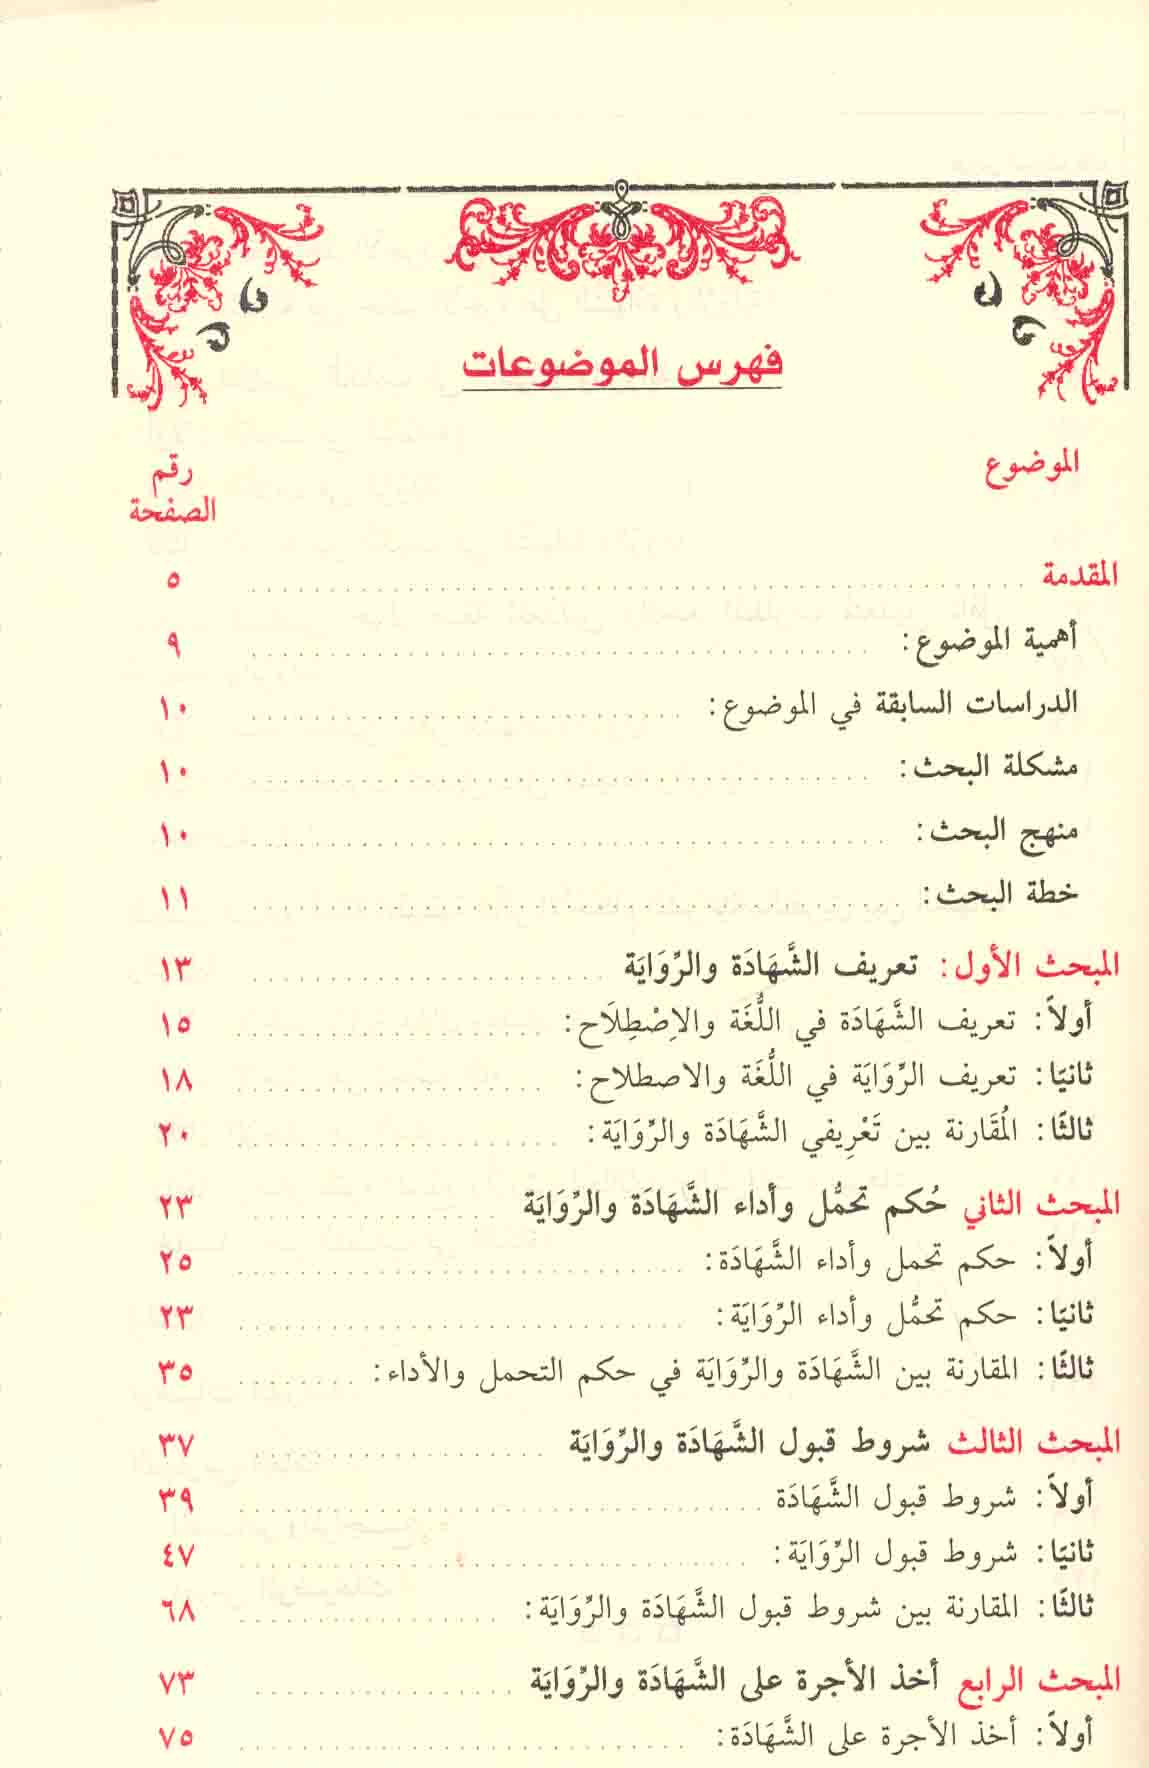 فهرس الموضوعات
الموضوع رقم
الصفحة
المقدمة ٥
أهمية الموضوع: ٩
الدراسات السابقة في الموضوع: ١٠
مشكلة البحث: ١٠
منهج البحث: ١٠
خطة البحث: ١١
المبحث الأول: تعريف الشَّهَادَة والرِّوَايَة ١٣
أولاً: تعريف الشَّهَادَة في اللُّغَة والاِصْطِلَاح: ١٥
ثانيًا: تعريف الرِّوَايَة في اللُّغَة والاصطلاح: ١٨
ثالثًا: المُقَارنة بين تَعْرِيفي الشَّهَادَة والرِّوَايَة: ٢٠
المبحث الثاني حُكم تحمُّل وأداء الشَّهَادَة والرِّوَايَة ٢٣
أولاً: حكم تحمل وأداء الشَّهَادَة: ٢٥
ثانيًا: حكم تحمُّل وأداء الرِّوَايَة: ٢٣
ثالثًا: المقارنة بين الشَّهَادَة والرِّوَايَة في حكم التحمل والأداء: ٣٥
المبحث الثالث شروط قبول الشَّهَادَة والرِّوَايَة ٣٧
أولاً: شروط قبول الشَّهَادَة ٣٩
ثانيًا: شروط قبول الرِّوَايَة: ٤٧
ثالثًا: المقارنة بين شروط قبول الشَّهَادَة والرِّوَايَة: ٦٨
المبحث الرابع أخذ الأجرة على الشَّهَادَة والرِّوَايَة ٧٣
أولاً: أخذ الأجرة على الشَّهَادَة: ٧٥